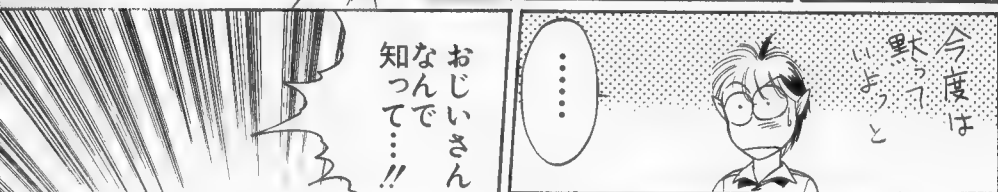 今度は
黙って
いよっ
と
……
おじいさん
なんで
知って…!!